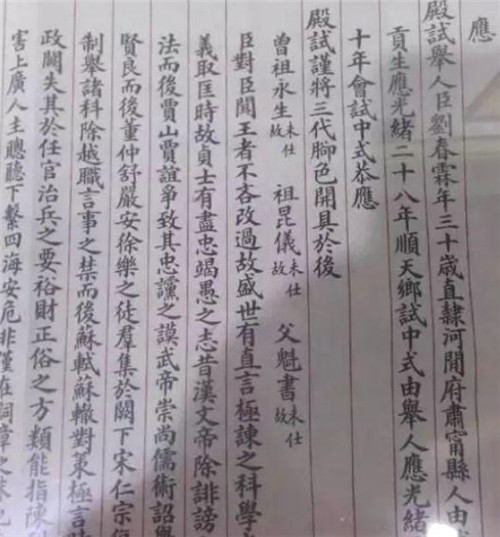 應
殿試舉人臣劉春霖年三十歲直隸河閒府肅甯縣人由
貢生應光緒二十八年順天鄉試中式由舉人應光緒
十年會試中式恭應
殿試謹將三代腳色開具於後
曾祖永生未仕故 祖昆儀未仕故 父魁書未仕故
臣對臣聞王者不吝改過故盛世有直言極諫之科學
義取匡時故貞士有盡忠竭愚之志昔漢文帝除誹謗
法而後賈山賈誼爭致其忠讜之謨武帝崇尚儒術詔舉
賢良而後董仲舒嚴安徐樂之徒羣集於闕下宋仁宗
制舉諸科除越職言事之禁而後蘇軾蘇轍對策極言
政闕失其於任官治兵之要裕財正俗之方類能指陳
害上廣人主聰聽下繫四海安危非僅在詞章之末